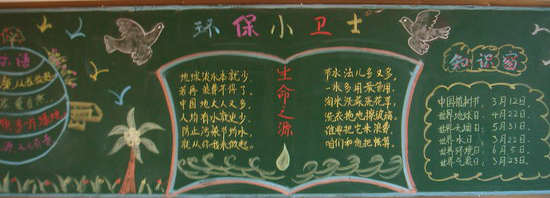 环保小卫士
地球淡水本就少,
若再浪费不得了。
中国地大人又多,
人均有水就更少。
防止污染节约水,
就从你我来做起。
生命之源
节水法儿多又多,
一水多用最管用。
淘米洗菜浇花草,
洗衣拖地擦玻璃。
谁要把它来浪费,
咱们和他把账算。
知识窗
中国植树节,3月12日。
世界地球日,4月22日。
世界无烟日,5月31日。
世界水日,3月22日。
世界环境日,6月5日。
世界气象日,3月23日。